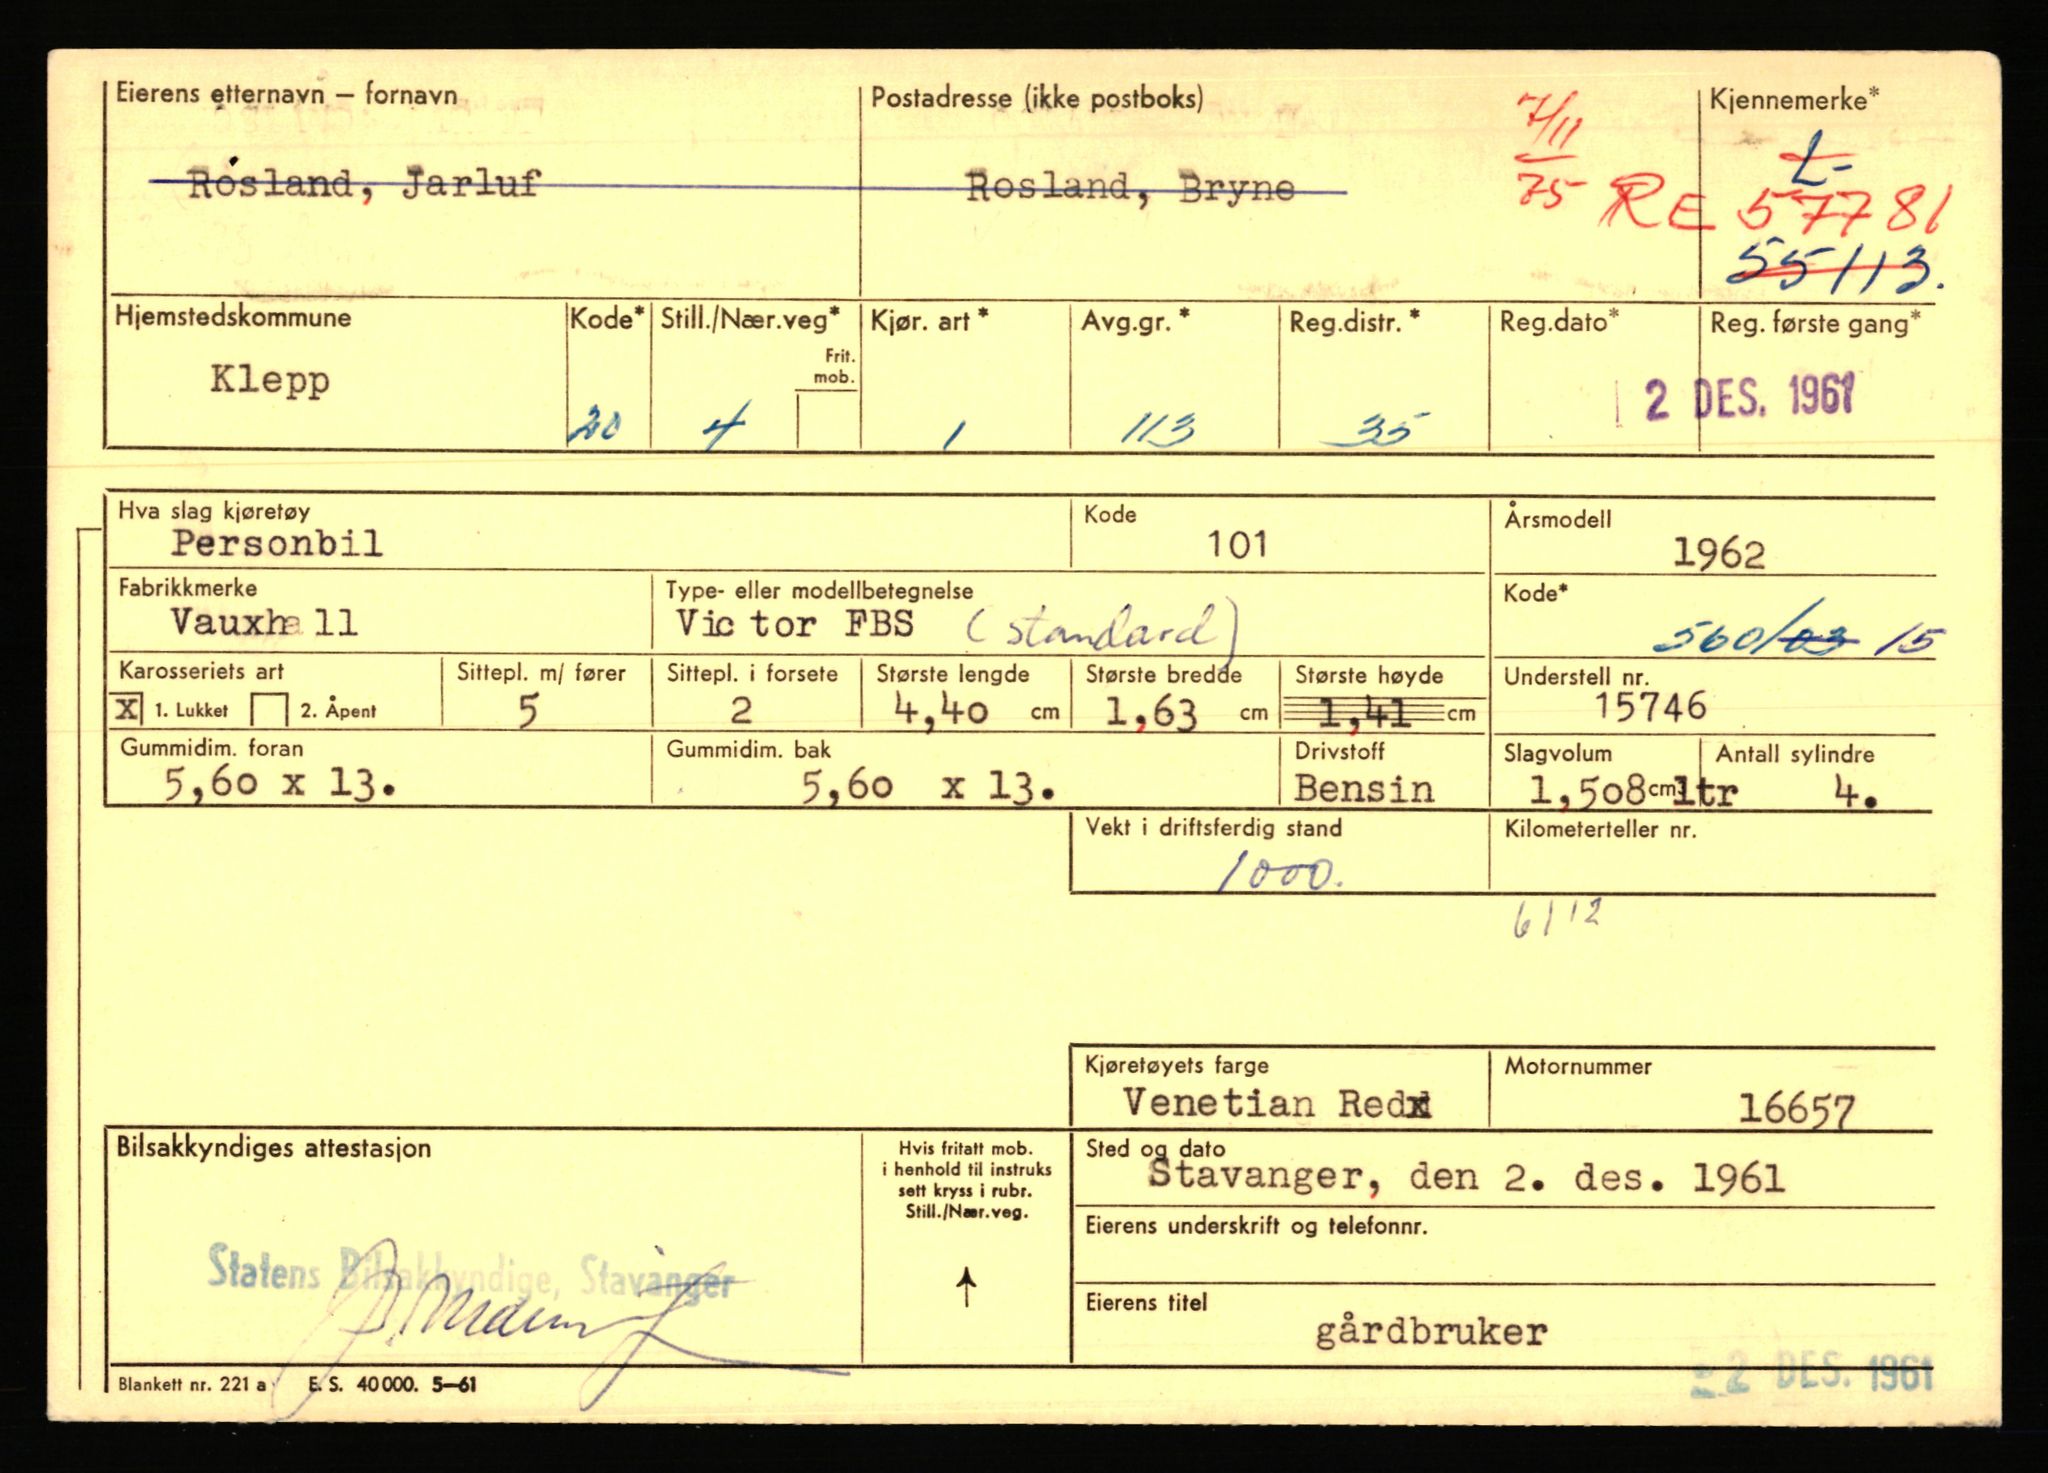 Eierens etternavn — fornavn
Rosland, Jarluf
Postadresse (ikke postboks)
Rosland, Bryne
7/11
75
Kjennemerke*
L-
RE 57781
55113.
Hjemstedskommune
Klepp
Kode*
20
Still./Nær.veg*
Frit.
mob.
4
Kjør. art *
1
Avg.gr. *
113
Reg.distr. *
35
Reg.dato*
Reg. første gang*
2 DES. 1961
Hva slag kjøretøy
Personbil
Kode
101
Årsmodell
1962
Fabrikkmerke
Vauxhall
Type- eller modellbetegnelse
Victor FBS (standard)
Kode*
560/03 15
Karosseriets art
X 1. Lukket 2. Åpent
Sittepl. m/ fører
5
Sittepl. i forsete
2
Største lengde
4,40 cm
Største bredde
1,63 cm
Største høyde
1,41 cm
Understell nr.
15746
Gummidim. foran
5,60 x 13.
Gummidim. bak
5,60 x 13.
Drivstoff
Bensin
Slagvolum
1,508 cm³ ltr
Antall sylindre
4.
Vekt i driftsferdig stand
1000.
Kilometerteller nr.
6112
Kjøretøyets farge
Venetian Red
Motornummer
16657
Bilsakkyndiges attestasjon
Statens Bilsakkyndige, Stavanger
Hvis fritatt mob.
i henhold til instruks
sett kryss i rubr.
Still./Nær.veg.
↑
Sted og dato
Stavanger, den 2. des. 1961
Eierens underskrift og telefonnr.
Eierens titel
gårdbruker
2 DES. 1961
Blankett nr. 221 a E. S. 40000. 5—61